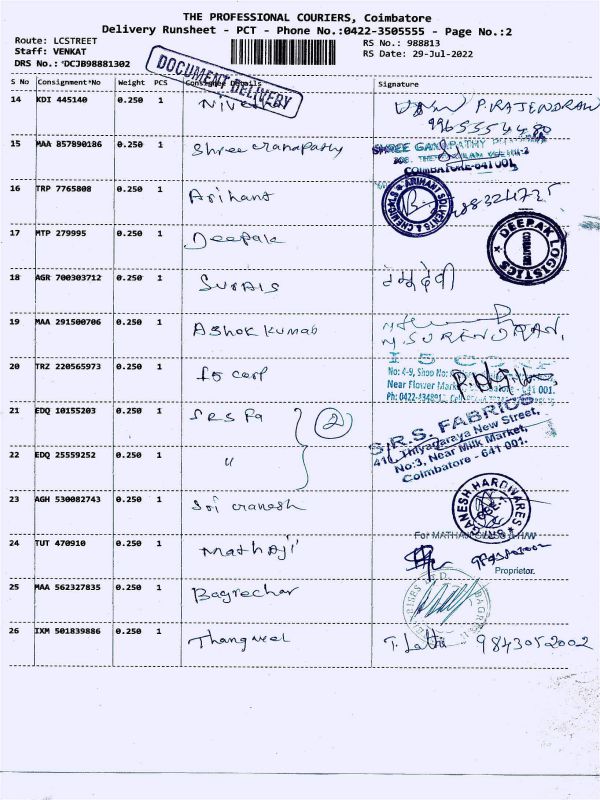 THE PROFESSIONAL COURIERS, Coimbatore
Delivery Runsheet - PCT - Phone No.:0422-3505555 - Page No.:2
Route: LCSTREET
RS No.: 988813
Staff: VENKAT
RS Date: 29-Jul-2022
DRS No.: *DCJB98881302
DOCUMENT DELIVERY
S No Consignment*No Weight PCS Consignee Details Signature
14 KDI 445140 0.250 1 P.RAJENDRAN
15 MAA 857890186 0.250 1 Shree Ganapathy
SHREE GANAPATHY
COIMBATORE-641 001
16 TRP 7765808 0.250 1 Arihant
ARIHANT SOLVENTS & CHEMICALS
17 MTP 279995 0.250 1 Deepak
DEEPAK LOGISTICS
COIMBATORE
18 AGR 700303712 0.250 1
19 MAA 291500706 0.250 1 Ashok Kumar
M. SURENDRAN.
20 TRZ 220565973 0.250 1 I5 corp
I 5 CORP
No: 4-9, Shop No:
Near Flower Market
641 001.
21 EDQ 10155203 0.250 1 SRS Fa 2
S.R.S. FABRICS
Thiyagaraya New Street,
No:3, Near Milk Market,
Coimbatore - 641 001.
22 EDQ 25559252 0.250 1 "
23 AGH 530082743 0.250 1 Sri Ganesh
SRI GANESH HARDWARES
24 TUT 470910 0.250 1 Mathaji
For MATHAJI
H/W
Proprietor.
25 MAA 562327835 0.250 1 Bagrechar
26 IXM 501839886 0.250 1 Thangavel T. 9843052002